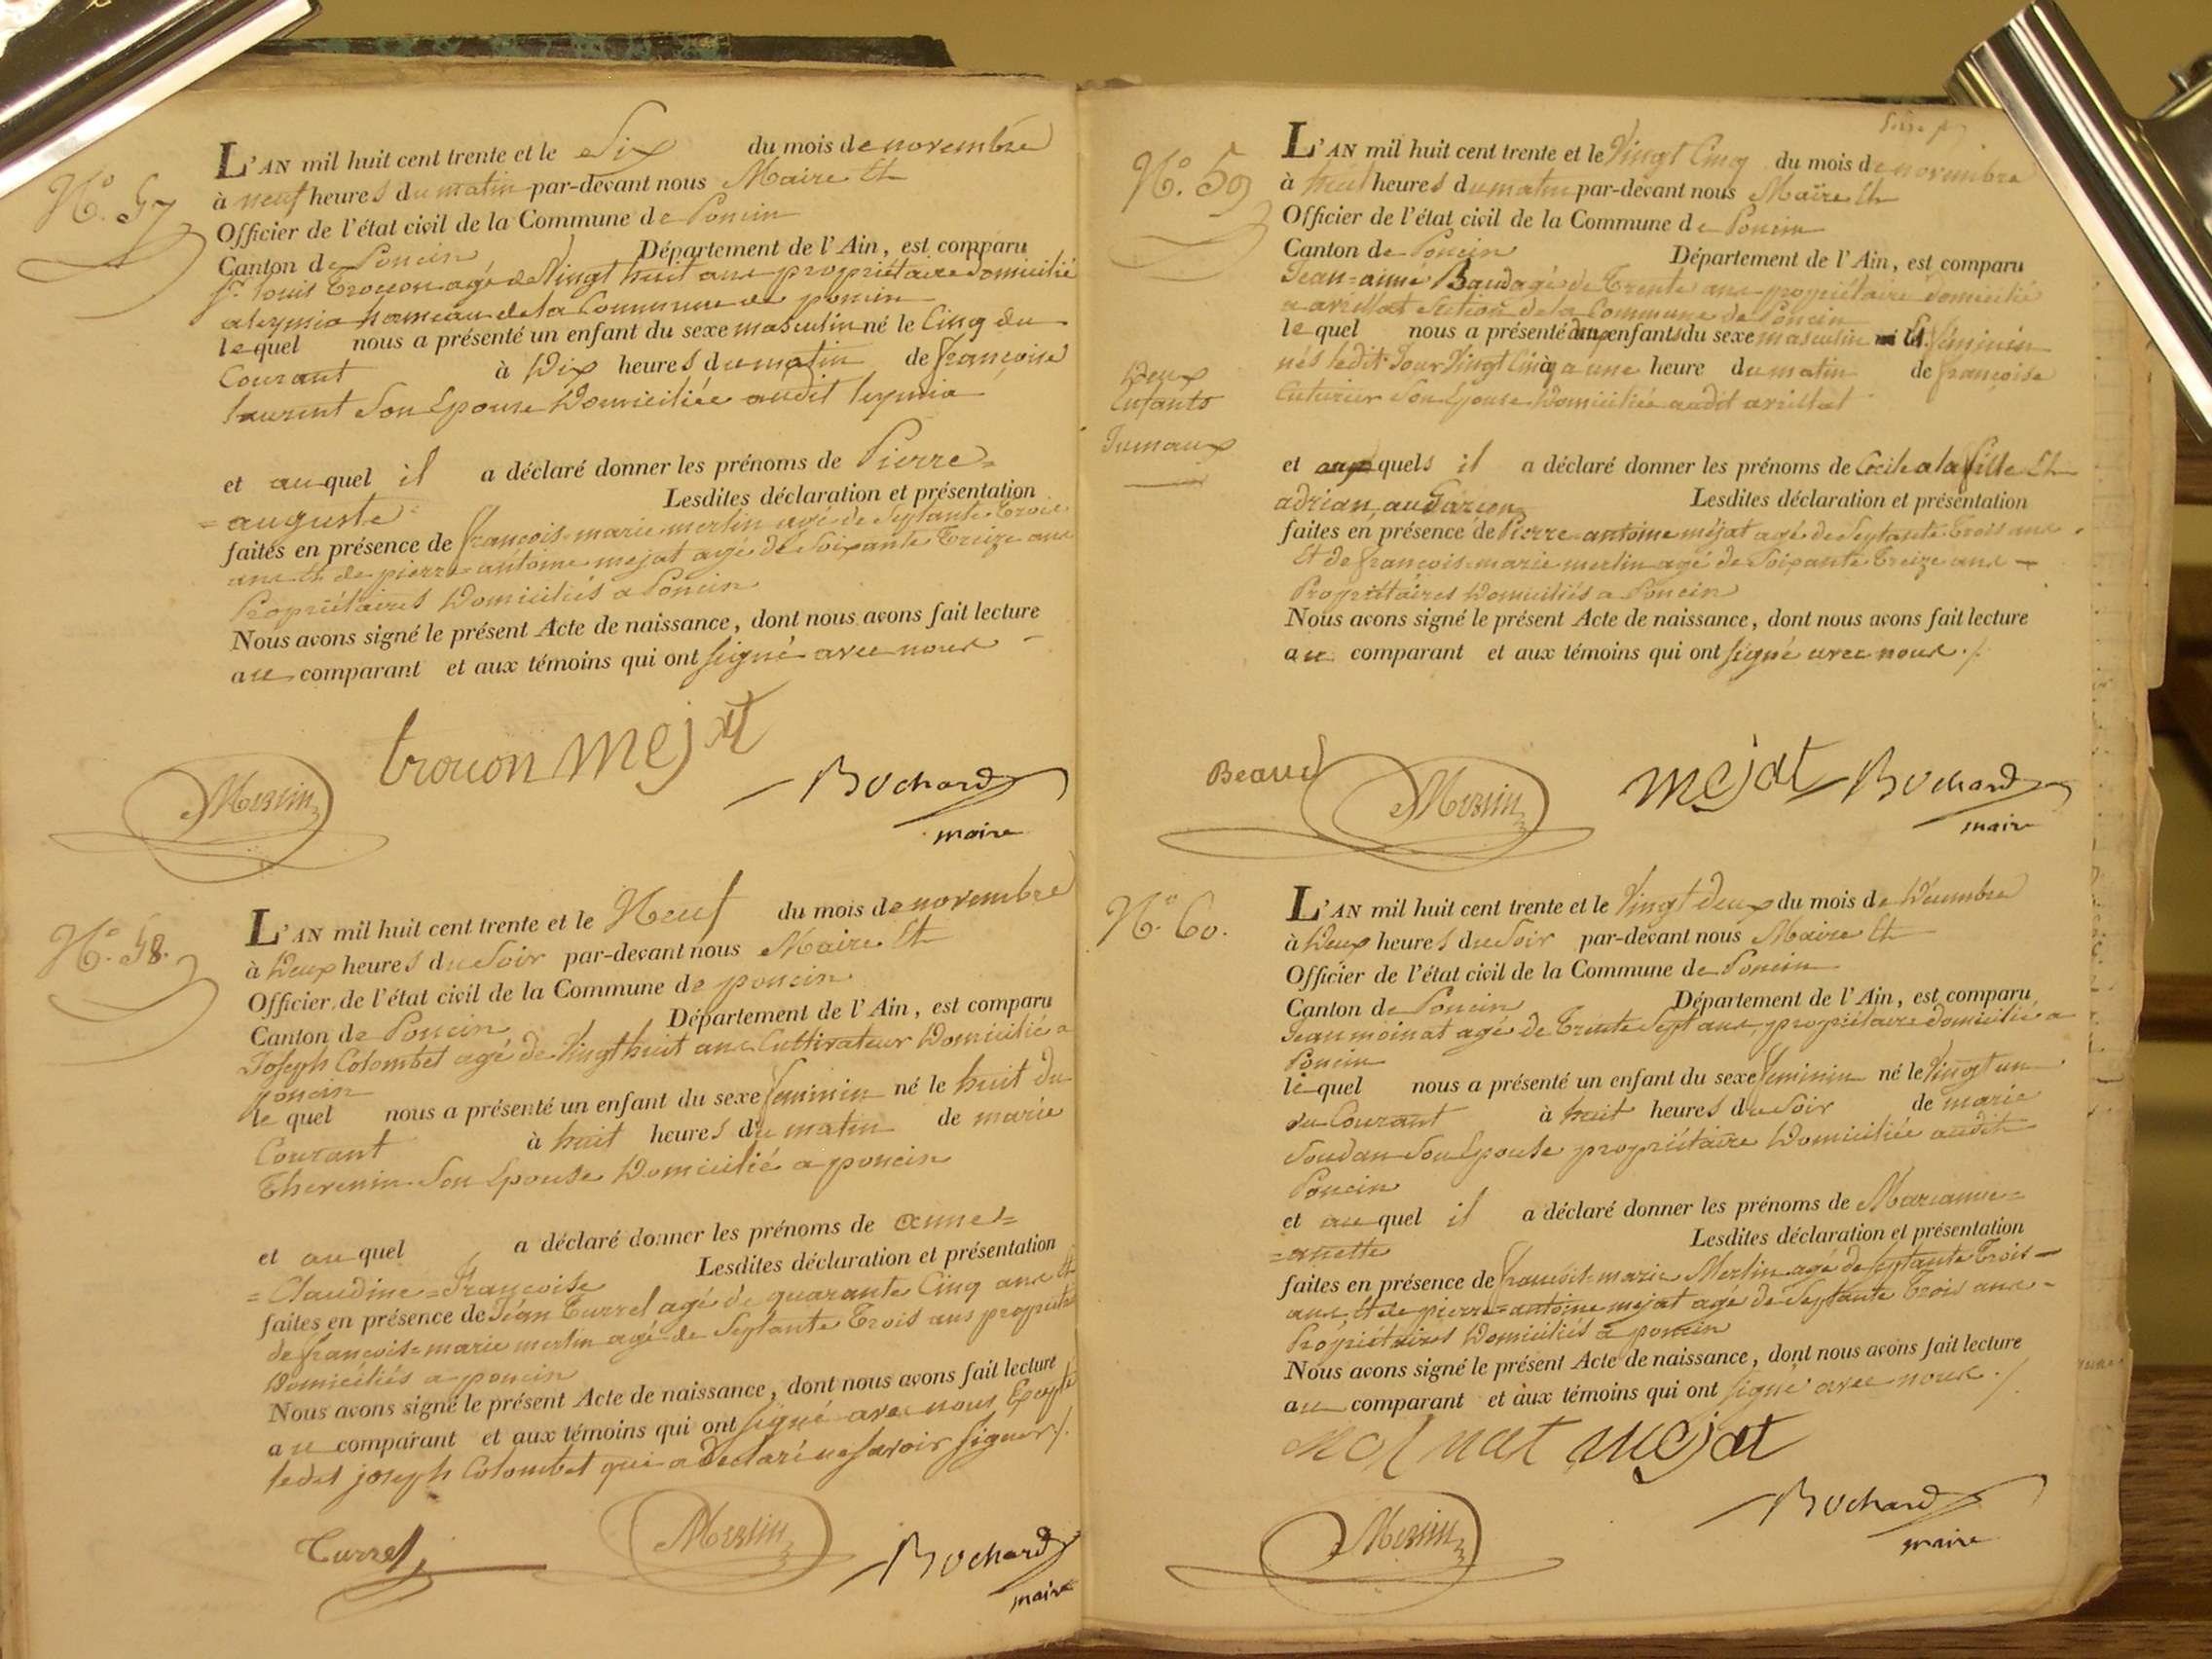 N.º 57
L'AN mil huit cent trente et le Six du mois de novembre
à neuf heures du matin par-devant nous Maire Et
Officier de l'état civil de la Commune de Poncin
Canton de Poncin Département de l'Ain, est comparu
louis trocon agé de Vingt huit ans propriétaire domicilié
a leymia hameau de la Commune de poncin
lequel nous a présenté un enfant du sexe masculin né le Cinq du
Courant à Dix heures du matin de françoise
laurent Son Epouse Domiciliée audit leymia
et auquel il a déclaré donner les prénoms de Pierre=
=auguste Lesdites déclaration et présentation
faites en présence de françois-marie merlin agé de Septante Trois
ans Et de pierre antoine mejat agé de Soixante Treize ans
Propriétaires Domiciliés a Poncin
Nous avons signé le présent Acte de naissance, dont nous avons fait lecture
au comparant et aux témoins qui ont signé avec nous
trocon mejat
Merlin
Bochard
maire
N.º 58.
L'AN mil huit cent trente et le Neuf du mois de novembre
à Deux heures du Soir par-devant nous Maire Et
Officier de l'état civil de la Commune de poncin
Canton de Poncin Département de l'Ain, est comparu
Joseph Colombet agé de Vingt huit ans Cultivateur Domicilié a
poncin
lequel nous a présenté un enfant du sexe feminin né le huit du
Courant à huit heures du matin de marie
Thevenin Son Epouse Domicilié a poncin
et auquel a déclaré donner les prénoms de anne=
=Claudine=Françoise Lesdites déclaration et présentation
faites en présence de Jean Turrel agé de quarante Cinq ans Et
de françois=marie merlin agé de Septante Trois ans propriét
Domiciliés a poncin
Nous avons signé le présent Acte de naissance, dont nous avons fait lecture
au comparant et aux témoins qui ont signé avec nous Excepté
ledet joseph Colombet qui a Declaré ne Savoir signer /.
Turrel
Merlin
Bochard
maire
N.º 59
L'AN mil huit cent trente et le Vingt Cinq du mois de novembre
à huit heures du matin par-devant nous Maire Et
Officier de l'état civil de la Commune de Poncin
Canton de Poncin Département de l'Ain, est comparu
Jean=aimé Baud agé de Trente ans propriétaire domicilié
a Section de la Commune de Poncin
lequel nous a présenté deux enfants du sexe masculin Et féminin
nés ledit Jour Vingt Cinq à une heure du matin de françoise
Cuturier Son Epouse Domiciliée audit
Deux
Enfants
Jumaux
et auxquels il a déclaré donner les prénoms de Cecile a la fille Et
adrian au Garçon Lesdites déclaration et présentation
faites en présence de Pierre-antoine méjat agé de Septante trois ans
Et de françois=marie merlin agé de Soixante Treize ans
Propriétaires Domiciliés a Poncin
Nous avons signé le présent Acte de naissance, dont nous avons fait lecture
au comparant et aux témoins qui ont signé avec nous ./.
Beaud
Merlin
mejat
Bochard
maire
N.º 60.
L'AN mil huit cent trente et le Vingt Deux du mois de Décembre
à Deux heures du Soir par-devant nous Maire Et
Officier de l'état civil de la Commune de Poncin
Canton de Poncin Département de l'Ain, est comparu
Jean moinat agé de Trente Sept ans propriétaire domicilié a
Poncin
lequel nous a présenté un enfant du sexe feminin né le Vingt un
du Courant à huit heures du Soir de marie
Soudan Son Epouse propriétaire Domiciliée audit
Poncin
et auquel il a déclaré donner les prénoms de Marianne=
=anette Lesdites déclaration et présentation
faites en présence de françois=marie Merlin agé de Septante Trois
ans, Et de pierre=antoine mejat agé de Septante Trois ans
Propriétaires Domiciliés a poncin
Nous avons signé le présent Acte de naissance, dont nous avons fait lecture
au comparant et aux témoins qui ont signé avec nous ./.
Moinat mejat
Merlin
Bochard
maire